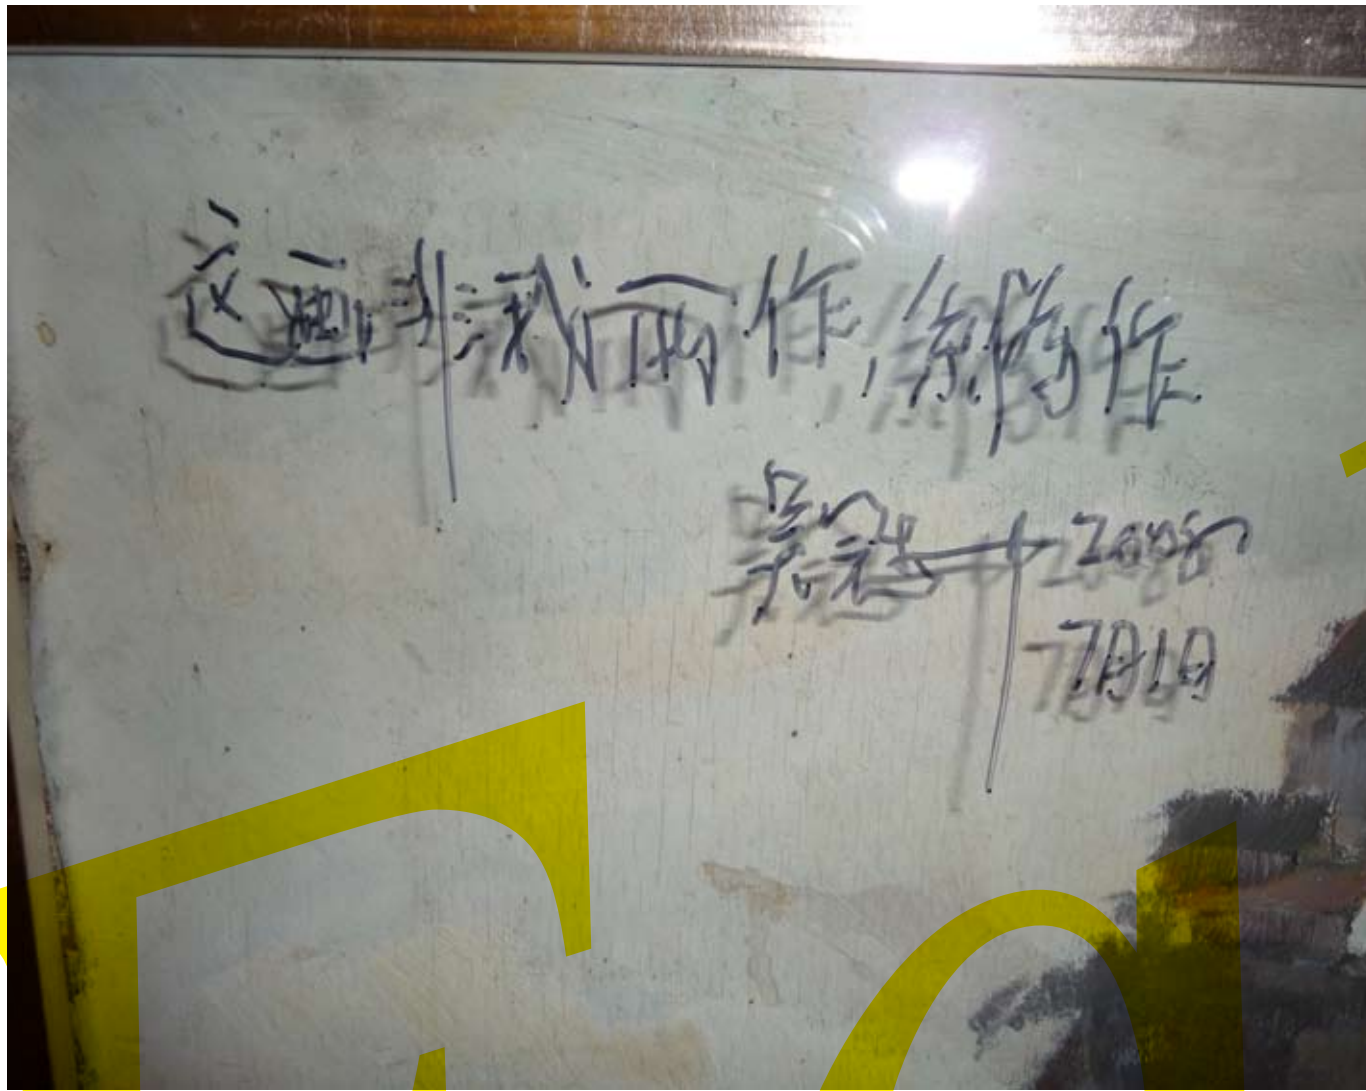 这画非我所作,系伪作
吴冠中 2008
7月1日